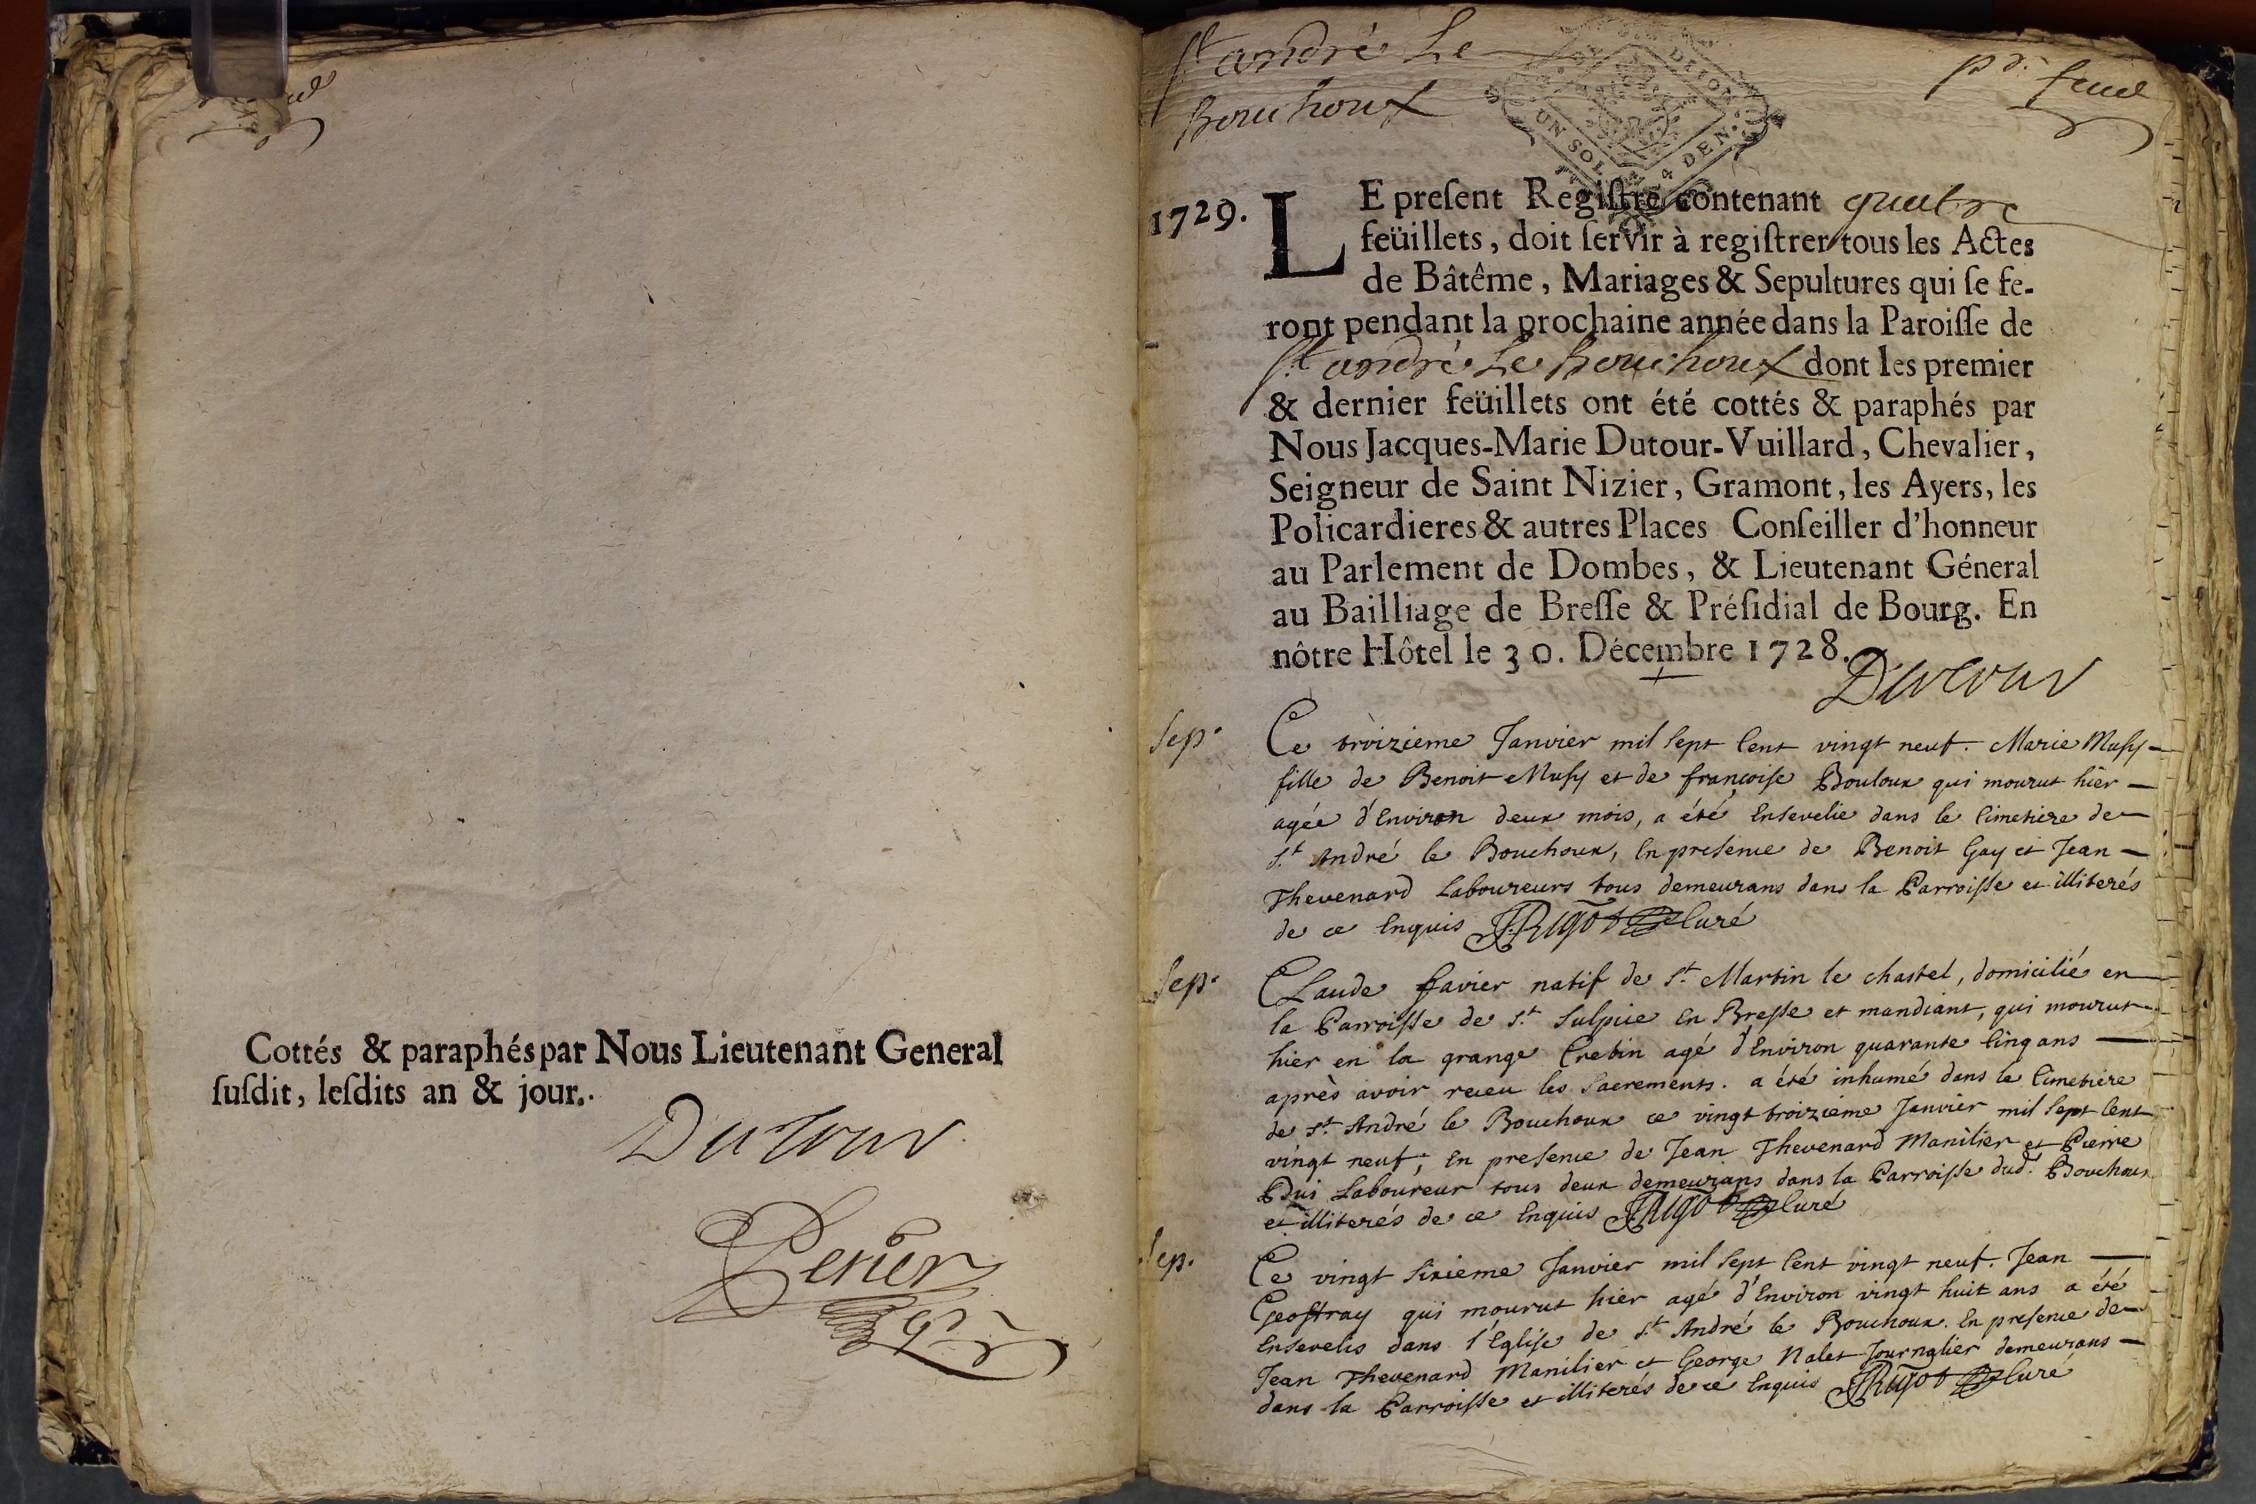 Cottés & paraphés par Nous Lieutenant General
ſuſdit, leſdits an & jour.
Dutour
Perier
St andré Le
Bouchoux
pr. feuil
UN SOL 4 DEN.
1729.
LE preſent Regiſtre contenant quatre
feüillets, doit ſervir à regiſtrer tous les Actes
de Bâtême, Mariages & Sepultures qui ſe fe-
ront pendant la prochaine année dans la Paroiſſe de
St andré Le Bouchoux dont les premier
& dernier feüillets ont été cottés & paraphés par
Nous Jacques-Marie Dutour-Vuillard, Chevalier,
Seigneur de Saint Nizier, Gramont, les Ayers, les
Policardieres & autres Places Conſeiller d'honneur
au Parlement de Dombes, & Lieutenant Géneral
au Bailliage de Breſſe & Préſidial de Bourg. En
nôtre Hôtel le 30. Décembre 1728.
Dutour
Sep.
Ce troizieme Janvier mil sept cent vingt neuf. Marie Musy
fille de Benoit Musy et de françoise Bouloux qui mourut hier
agée d'Environ deux mois, a été Ensevelie dans le Cimetiere de
St. André le Bouchoux, En presence de Benoit Gay et Jean
Thevenard Laboureurs tous demeurans dans la Parroisse et illiterés
de ce Enquis JRigot Curé
Sep.
Claude favier natif de St. Martin le chastel, domicilié en
la Parroisse de St. Sulpice En Bresse et mandiant, qui mourut
hier en la grange Cretin agé d'Environ quarante Cinq ans
après avoir receu les Sacrements. a été inhumé dans le Cimetiere
de St. André le Bouchoux ce vingt troizieme Janvier mil sept Cent
vingt neuf; En presence de Jean Thevenard Manilier et Pierre
Pui Laboureur tous deux demeurans dans la Parroisse dud. Bouchoux
et illiterés de ce Enquis JRigot Curé
Sep.
Ce vingt Sixieme Janvier mil sept Cent vingt neuf. Jean
Geoffray qui mourut hier agé d'Environ vingt huit ans a été
Ensevelis dans l'Eglise de St. André le Bouchoux. En presence de
Jean Thevenard Manilier et George Nalet Journalier demeurans
dans la Parroisse et illiterés de ce Enquis JRigot Curé